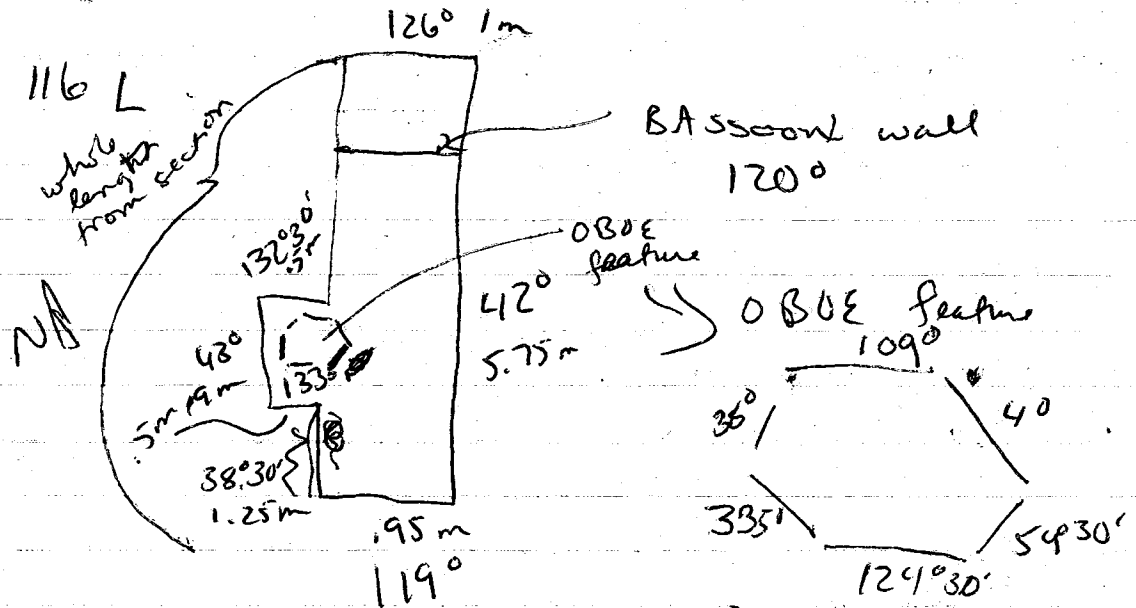 126° 1m
116 L
whole
length
from section
BAssoon wall
120°
132°30'
.5m
OBOE
feature
42°
5.75m
43°
.9m
133°
.5m
38°30'
1.25m
.95m
119°
OBOE feature
109°
4°
335°
54°30'
124°30'